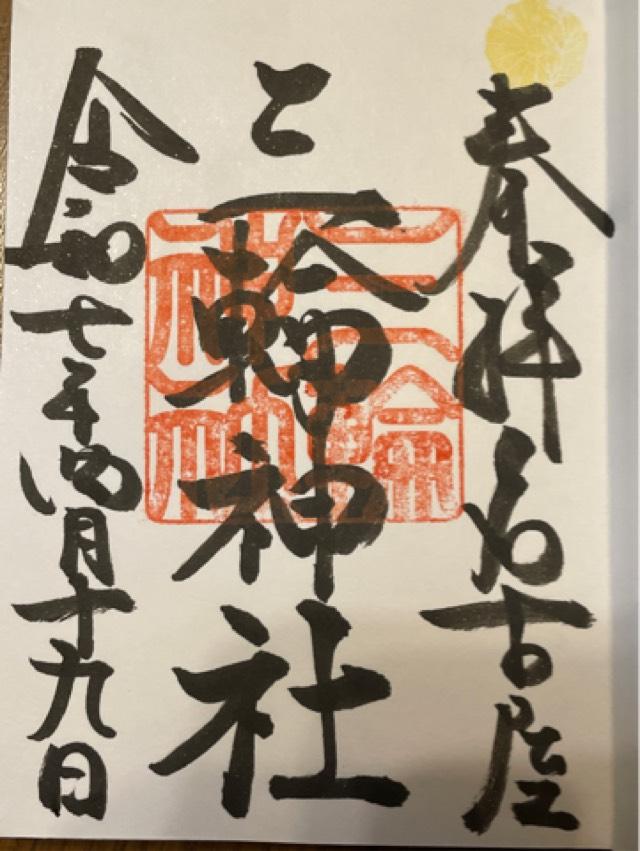 奉拝名古屋
三輪神社
令和七年四月十九日
三輪
神社